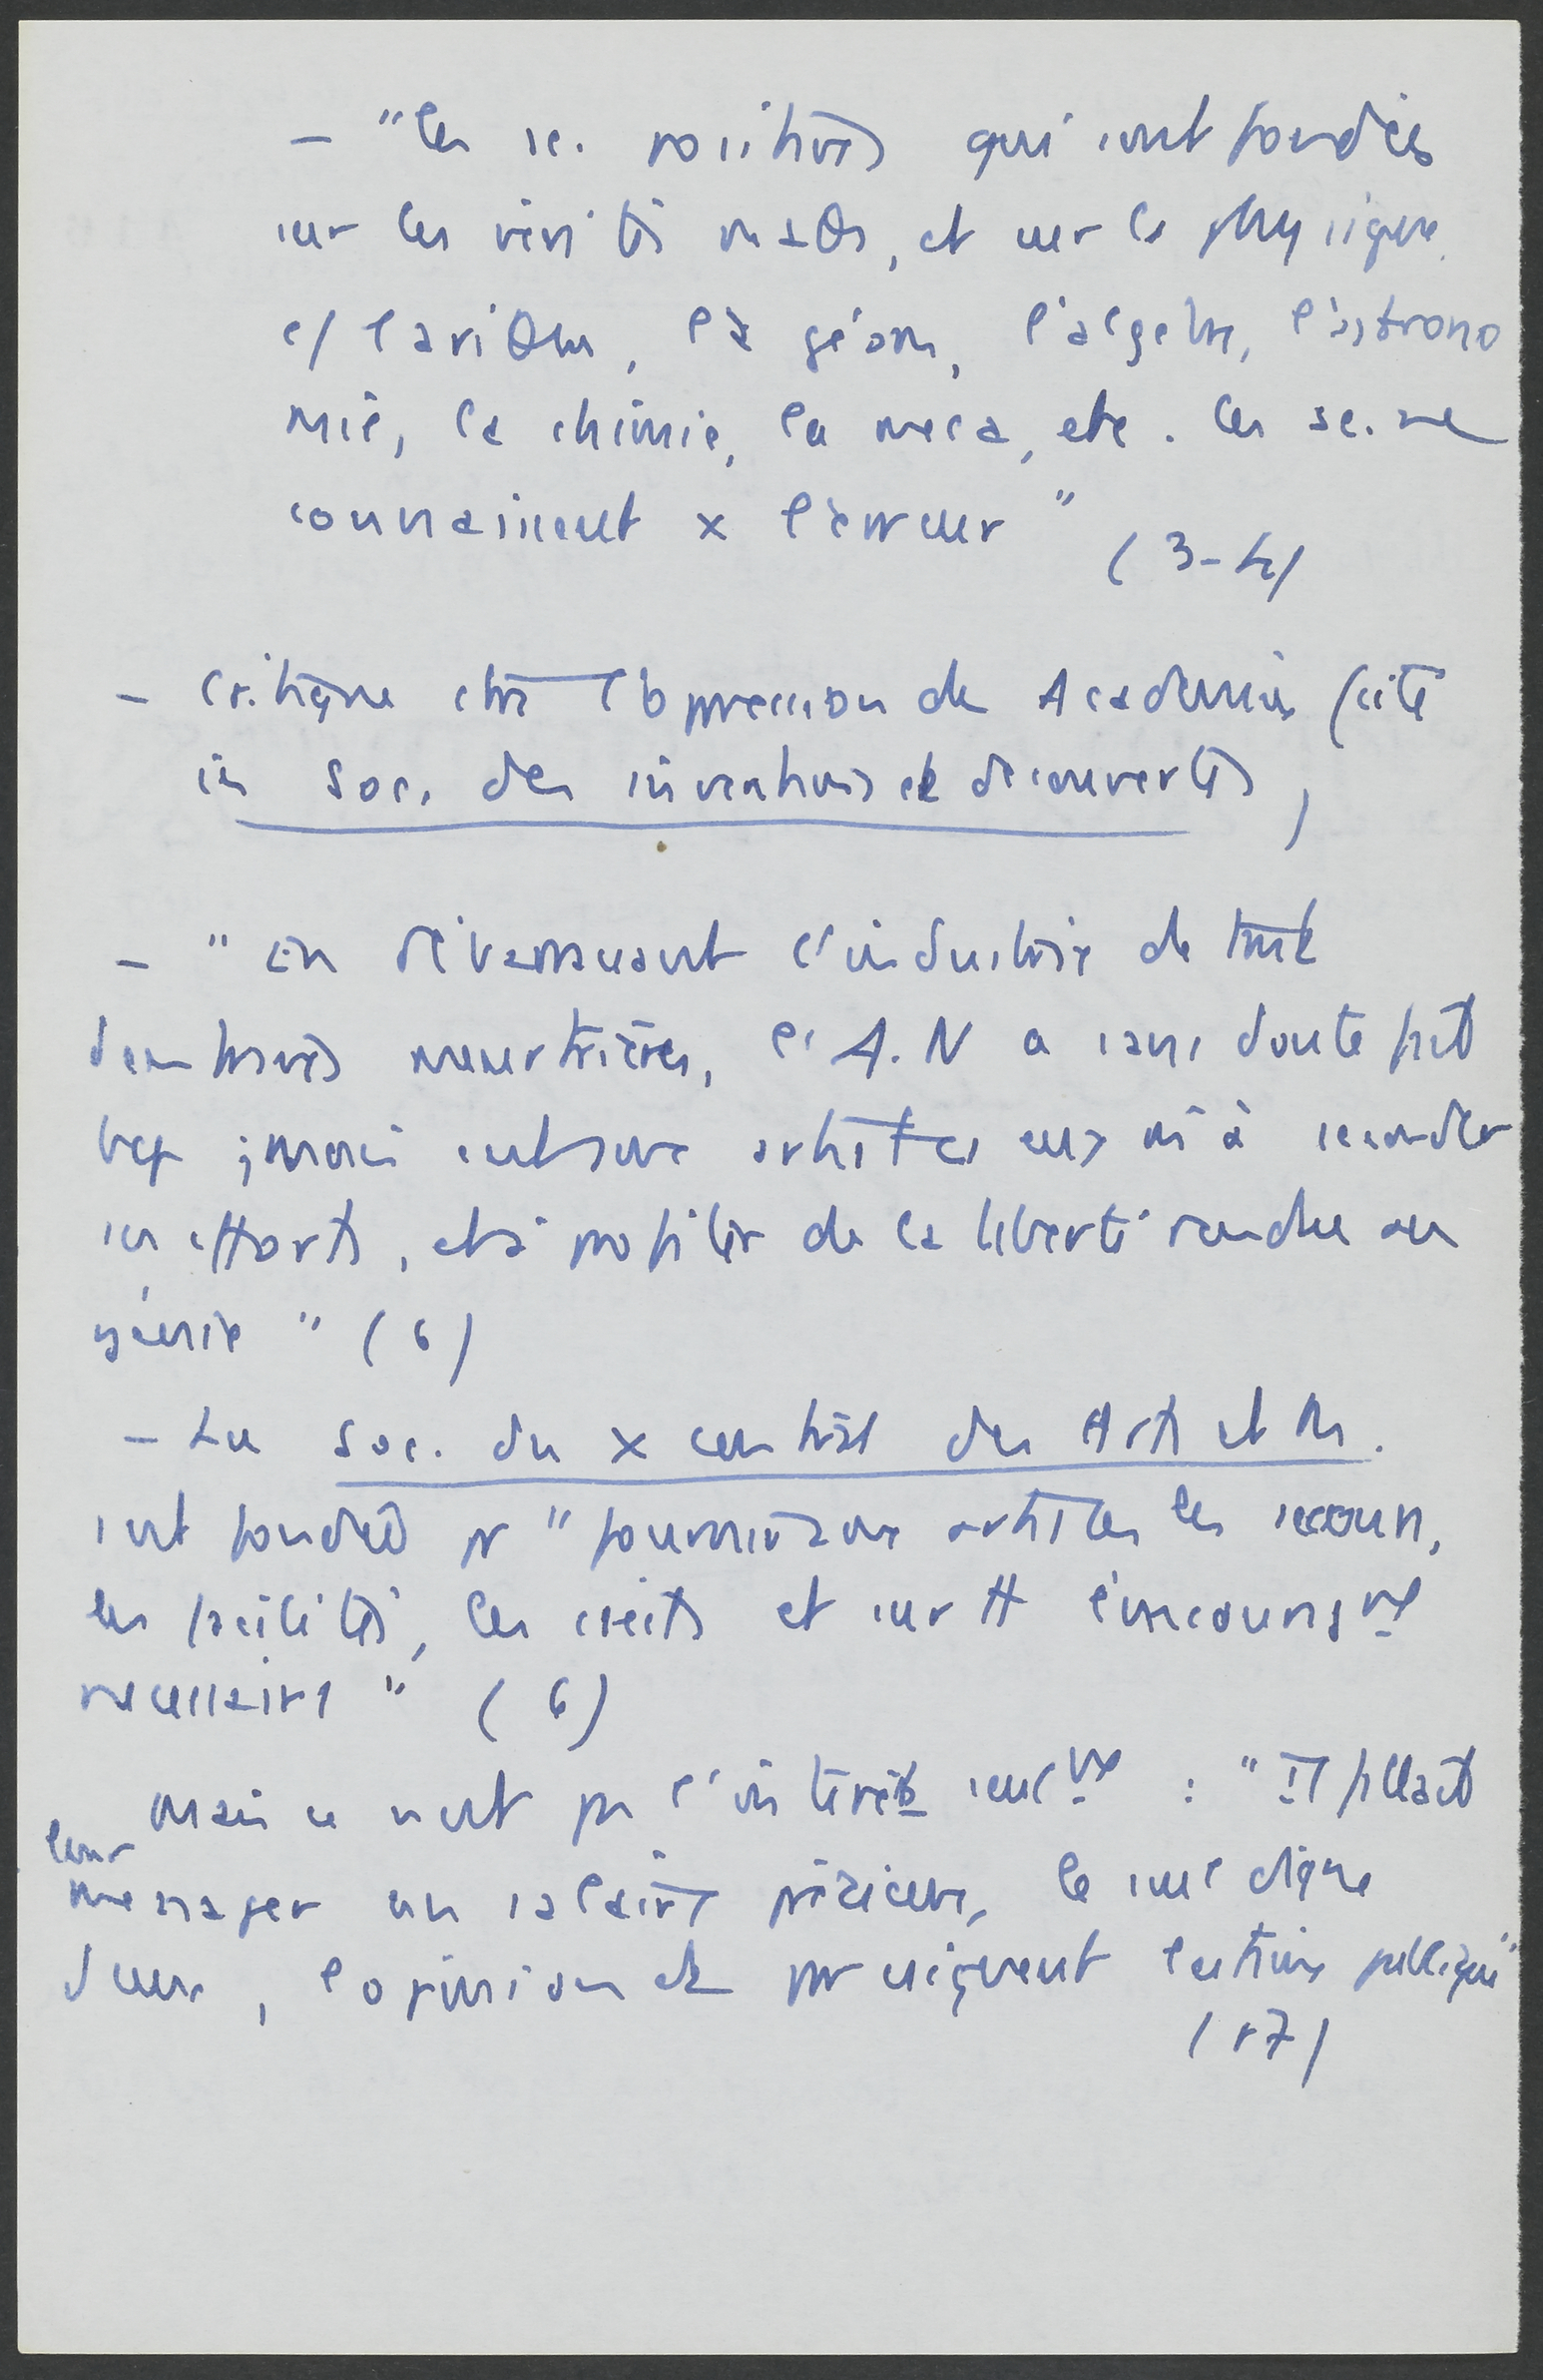 - "Les sc. positives qui sont fondées
sur les vérités maths, et sur la physique.
c/ l'arithm, la géom, l'algebre, l'astrono
mie, la chimie, la meca, etc. Ces sc. ne
connaissent x l'erreur" (3-4)
- Critique ctre l'oppression de Academies (cité
in Soc. des inventions et découvertes)
- " En débarrassant l'industrie de toute
d'entraves meurtrières, l'A.N a sans doute fait
bcp ; mais c'est aux artistes eux mê à seconder
ses efforts, et à profiter de la liberté rendue au
génie " (6)
- La Soc. du x central des Arts et M.
s'est fondée pr " fournir aux artistes les secours,
les facilités, les crédits et surtt l'encouragt
necessaires " (6)
Mais ce n'est pas l'intérêt seult : " Il fallait
leur
menager un salaire précieux, le seul digne
d'eux, l'opinion et par conséquent l'estime publique"
(17)